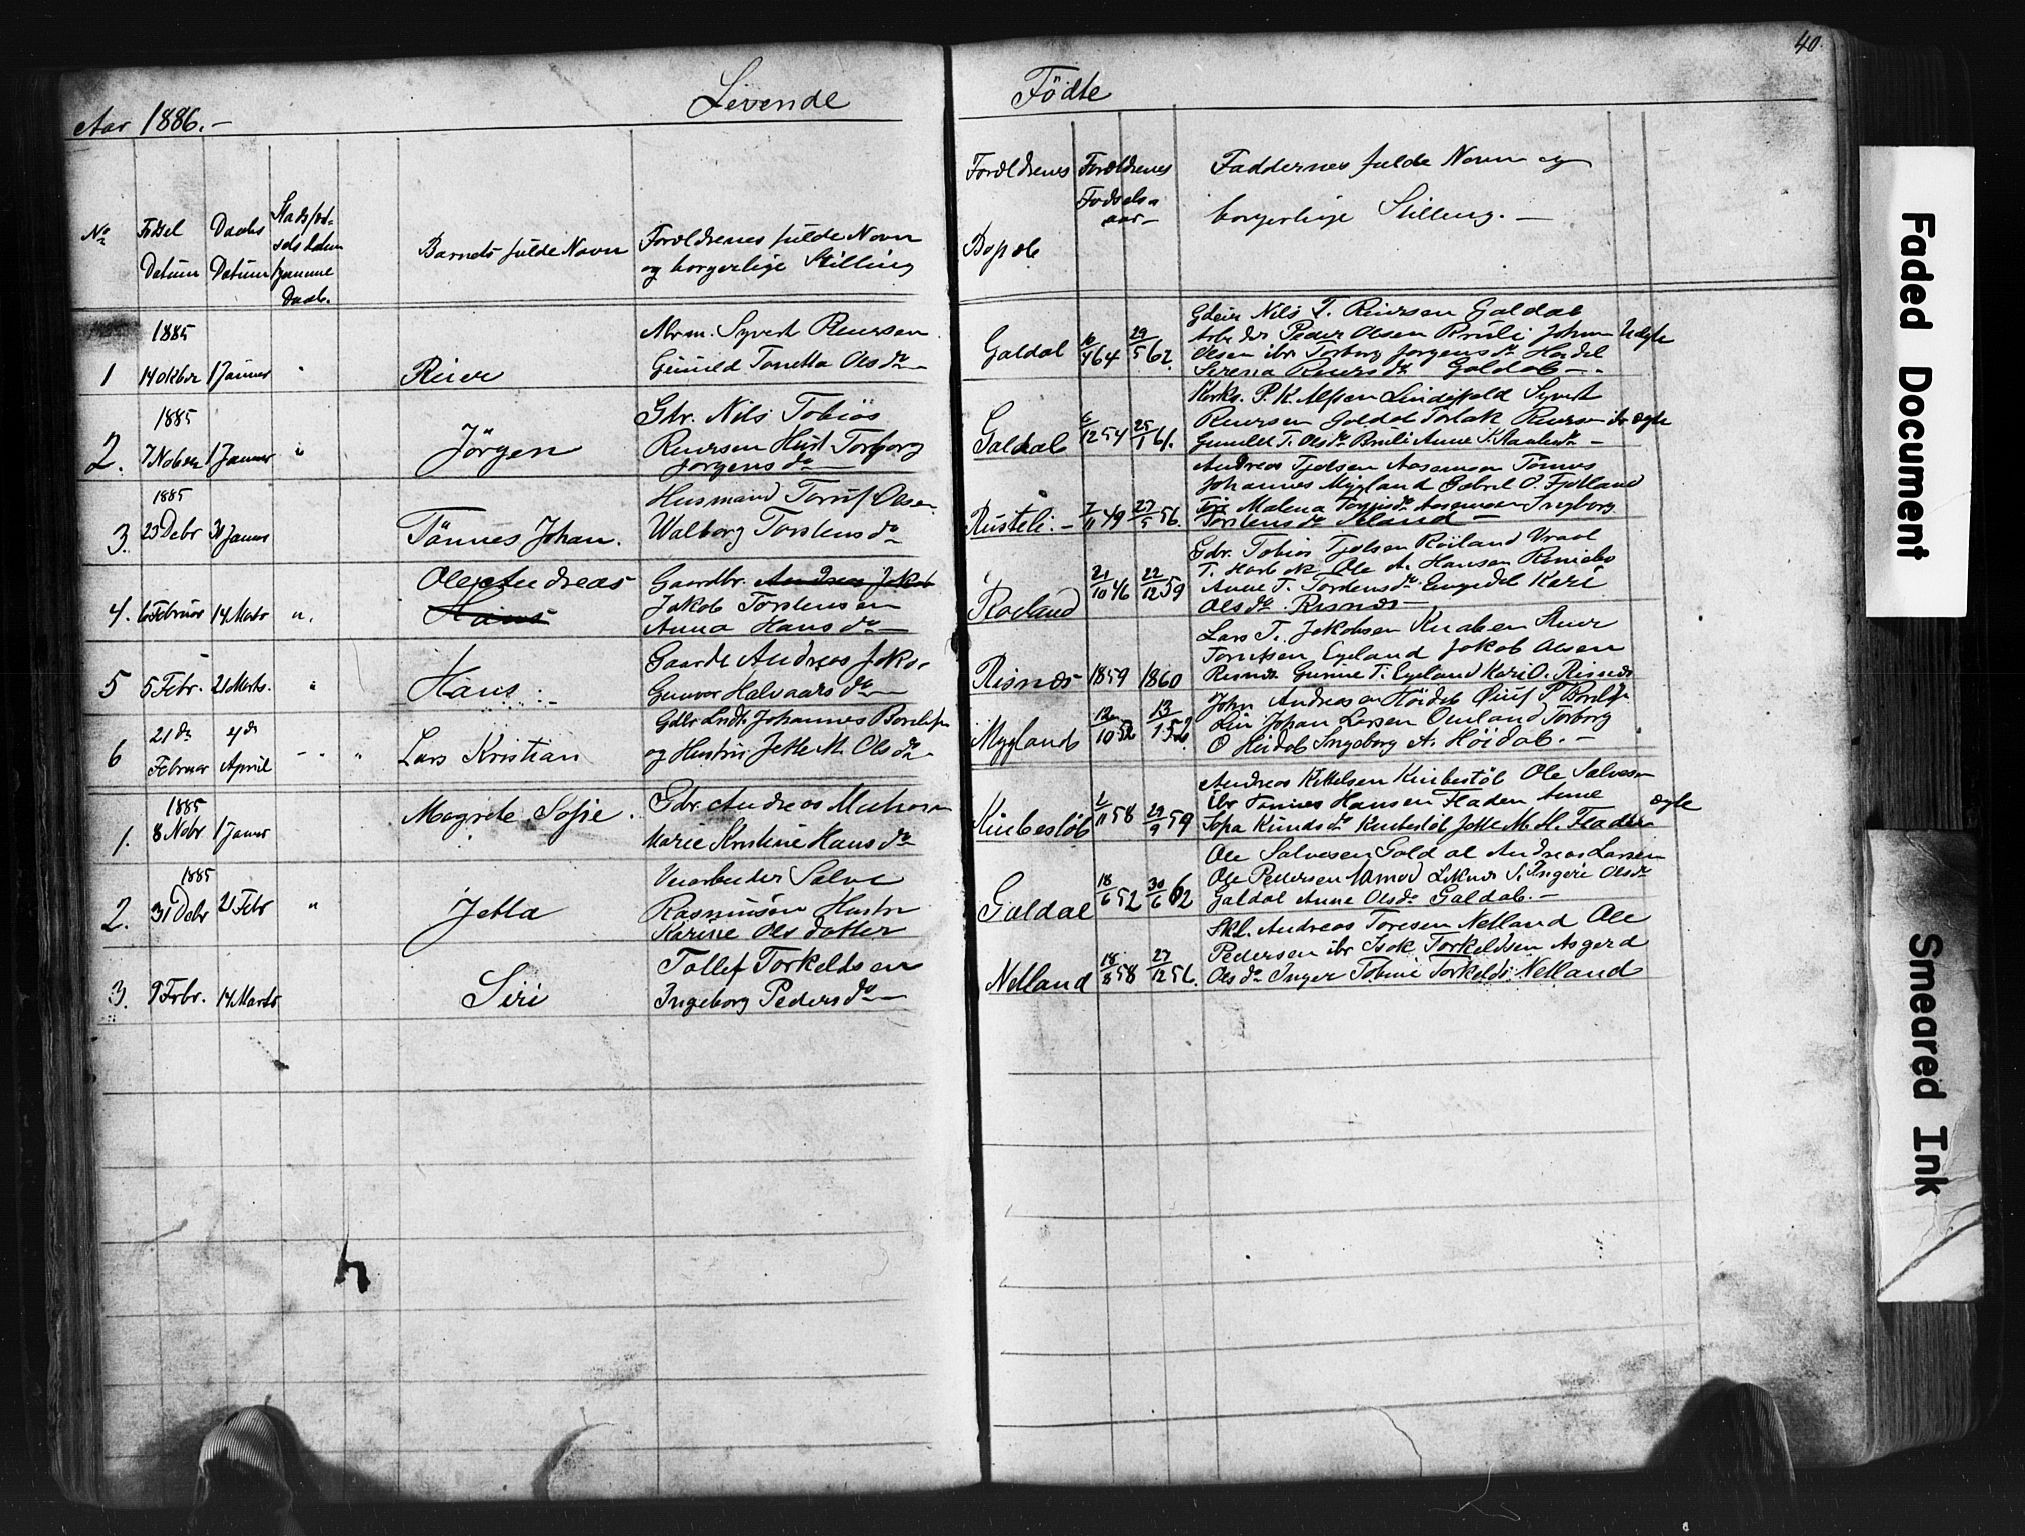 40.
Livende Födte
Aar 1886.-
No
Födsel
Datum
Daabs
Datum
Daab.
Barnets fulde Navn
Forældrenes fulde Navn
og borgerlige Stilling
Forældrenes
Bopæl
Forældrenes
Fødsels
aar
Faddernes fulde Navn og
borgerlige Stilling. -
1885
1 14 Oktber 1 Januar "
Reier
Syvert Reiersen
Gunild Tonetta Olsda
Galdal 64 29/5 62.
Nils T. Reiersen Galdal
Peder Olsen Bruli John
Olsen ibr Torborg Jørgensda
Serena Reiersda Galdal -.
Uægte
1885
2. 7 Nobver 1 Januar "
Jörgen
Gbr. Nils Tobias
Reiersen Hust Torborg
Jörgensda
Galdal 6/12 54 25/1 61.
Kirks. P. K. Alfsen Lindefjeld Syvert
Reiersen Galdal Torlak Reiersen
Gunild T. Olsda Bruli Anne
ægte
1885
3. 23 Debr 31 Januar
Tönnes Johan.
Husmand Toruf Olsen
Walborg Torstensda
Rusteli. - 49 27/5 56.
Andreas Tjølsen Aasemoen Tönnes
Johannes Mygland Gabriel O. Fjotland
Malena Aasemoen Ingborg
Torstensda Øland -
4. 6 Februar 14 Marts ".
Ole Andreas
Hans
Gaardbr. Andreas Jakob
Jakob Torstensen
Anna Hansda
Roiland 21/10 46 22/12 59
Gbr. Tobias Tjølsen Röiland
T. Ole A. Hansen
Anne T. Tordensda Engedal Kari
Olsda. Risnes -
5 5 Febr. 21 Marts. "
Hans.
Gaardb Andreas Jaks.
Gunvor Halvaarsda
Risnes 1859 1860
Lars T. Jakobsen Knaben
Egeland Jakob Olsen
Risnes Gunne T. Egeland Kari O. Risnes
6 21de Februar 4de April " "
Lars Kristian
Johannes
og Hustru Jette M. Olsda
Mygland 12/10 13/1 52
John Andreasen Höidal
Johan Larsen Omland Torborg
O Höidal Ingeborg A. Höidal. -
1885
1. 8 Nobr 1 Januar
Magrete Sofie.
Gbr. Andreas
Marie Kristine Hansda
58 29/9 59
Andreas Kittelsen Ole Salvesen
ibr Tönnes Hansen Fladen Anne
Knudsda Jette M. H. Fladen
ægte
1885
2. 31 Debr 21 Febr "
Jetta
Salve
Rasmusen Hustr
Karine Olsdatter
Galdal 18/6 52 30/6 62
Ole Salvesen Galdal Andreas Larsen
Ole Pedersen S. Ingeri Olsda
Galdal Anne Olsda Galdal. -
3. 9 Febr. 14 Marts
Siri
Tollef Torkeldsen
Ingeborg Pedersda
Netland 18/8 58 27/12 56.
Skl. Andreas Toresen Netland Ole
Pedersen ibr Isak Torkeldsen Asgerd
Olsda Inger Tobine Torkelds: Netland
Faded Document
Smeared Ink